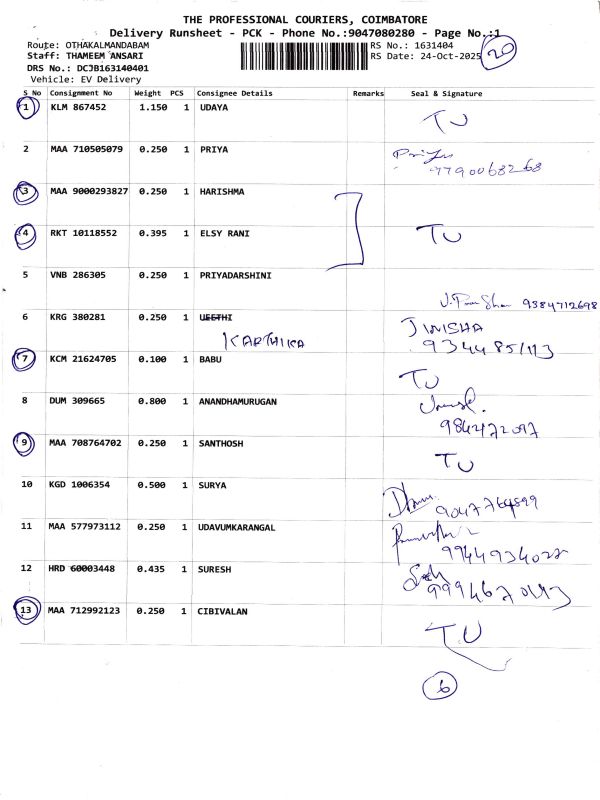 THE PROFESSIONAL COURIERS, COIMBATORE
Delivery Runsheet - PCK - Phone No.:9047080280 - Page No.:1
Route: OTHAKALMANDABAM RS No.: 1631404 20
Staff: THAMEEM ANSARI RS Date: 24-Oct-2025
DRS No.: DCJB163140401
Vehicle: EV Delivery
S No Consignment No Weight PCS Consignee Details Remarks Seal & Signature
1 KLM 867452 1.150 1 UDAYA TU
2 MAA 710505079 0.250 1 PRIYA Priya
7790068268
3 MAA 9000293827 0.250 1 HARISHMA
4 RKT 10118552 0.395 1 ELSY RANI TU
5 VNB 286305 0.250 1 PRIYADARSHINI
9384712698
6 KRG 380281 0.250 1 UEETHI JINISHA
KARTHIKA
7 KCM 21624705 0.100 1 BABU TU
8 DUM 309665 0.800 1 ANANDHAMURUGAN
9 MAA 708764702 0.250 1 SANTHOSH TU
10 KGD 1006354 0.500 1 SURYA
9047764899
11 MAA 577973112 0.250 1 UDAVUMKARANGAL
9944934028
12 HRD 60003448 0.435 1 SURESH
13 MAA 712992123 0.250 1 CIBIVALAN TU
6